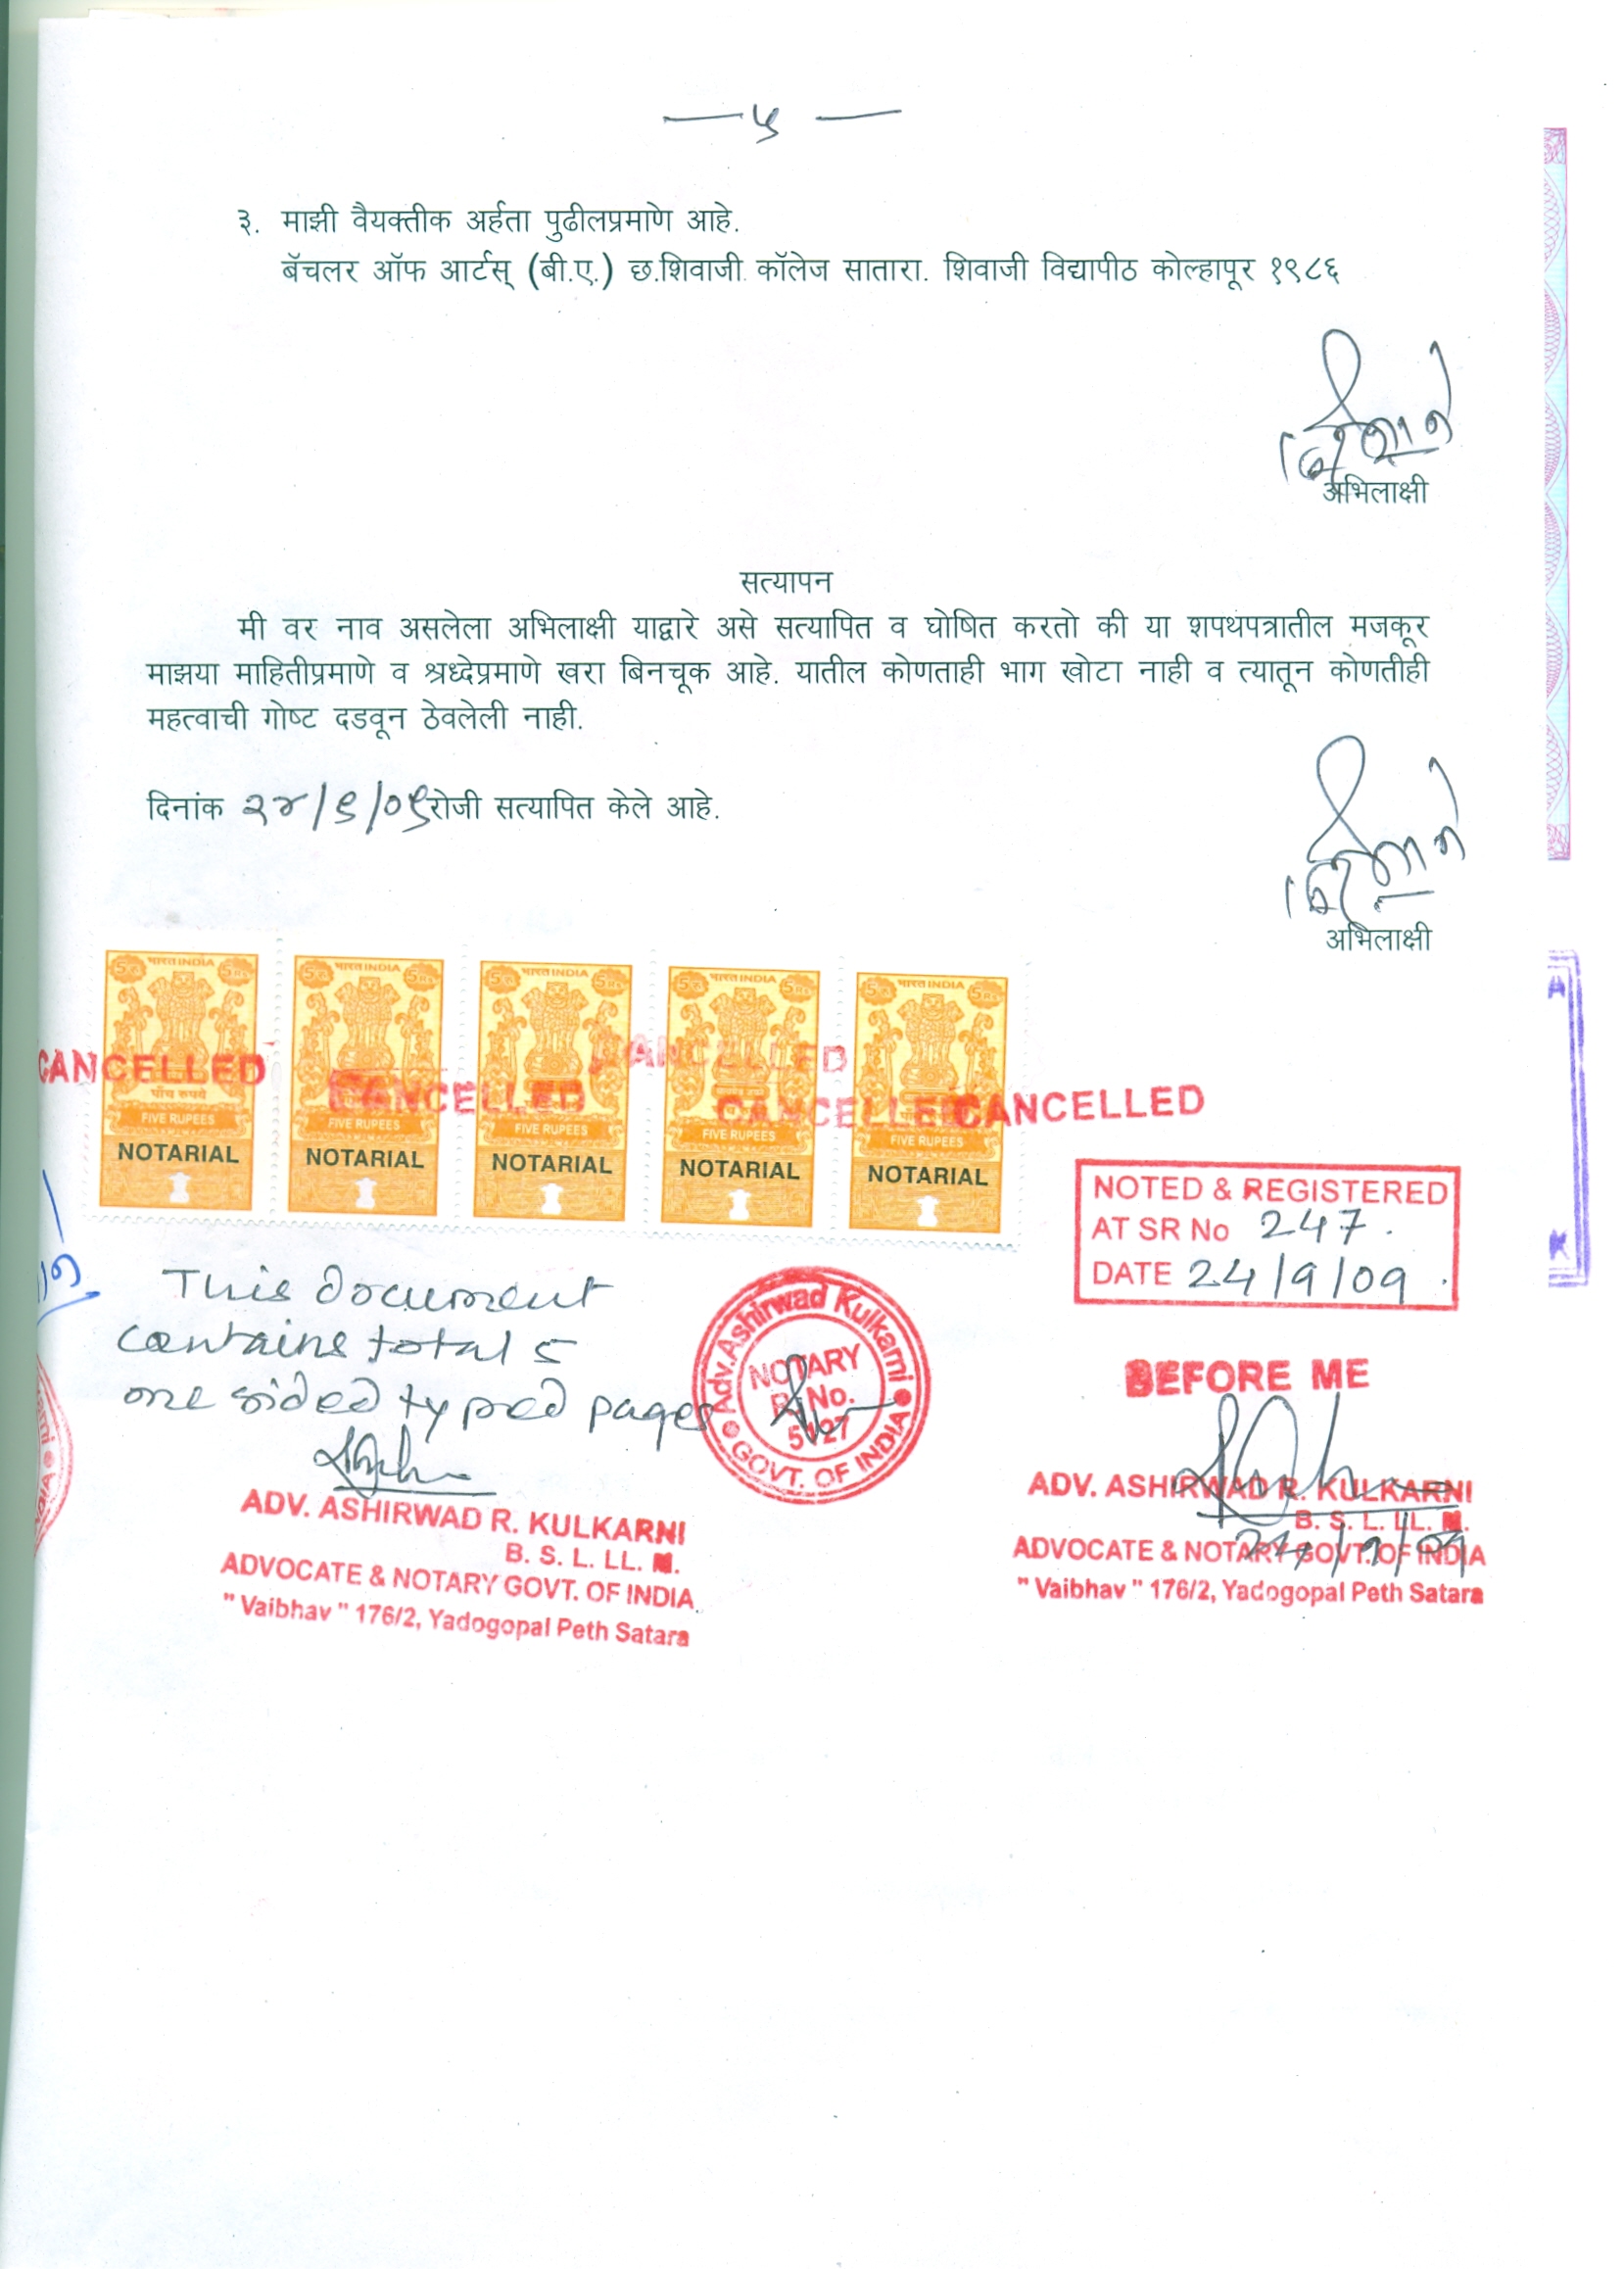 — ५ —
३. माझी वैयक्तीक अर्हता पुढीलप्रमाणे आहे.
बॅचलर ऑफ आर्टस् (बी.ए.) छ.शिवाजी कॉलेज सातारा. शिवाजी विद्यापीठ कोल्हापूर १९८६
अभिलाक्षी
सत्यापन
मी वर नाव असलेला अभिलाक्षी याद्वारे असे सत्यापित व घोषित करतो की या शपथपत्रातील मजकूर
माझया माहितीप्रमाणे व श्रध्देप्रमाणे खरा बिनचूक आहे. यातील कोणताही भाग खोटा नाही व त्यातून कोणतीही
महत्वाची गोष्ट दडवून ठेवलेली नाही.
दिनांक २४/९/०९ रोजी सत्यापित केले आहे.
अभिलाक्षी
भारत INDIA भारत INDIA भारत INDIA भारत INDIA भारत INDIA
CANCELLED CANCELLED CANCELLED CANCELLED CANCELLED
पाँच रुपये
FIVE RUPEES FIVE RUPEES FIVE RUPEES FIVE RUPEES FIVE RUPEES
NOTARIAL NOTARIAL NOTARIAL NOTARIAL NOTARIAL
NOTED & REGISTERED
AT SR No 247.
DATE 24/9/09.
This document
contains total 5
one sided typed pages
Adv. Ashirwad Kulkarni
NOTARY
R. No.
5127
GOVT. OF INDIA
BEFORE ME
ADV. ASHIRWAD R. KULKARNI
B. S. L. LL. M.
ADVOCATE & NOTARY GOVT. OF INDIA
" Vaibhav " 176/2, Yadogopal Peth Satara
ADV. ASHIRWAD R. KULKARNI
B. S. L. LL. M.
24/9/09
ADVOCATE & NOTARY GOVT. OF INDIA
" Vaibhav " 176/2, Yadogopal Peth Satara